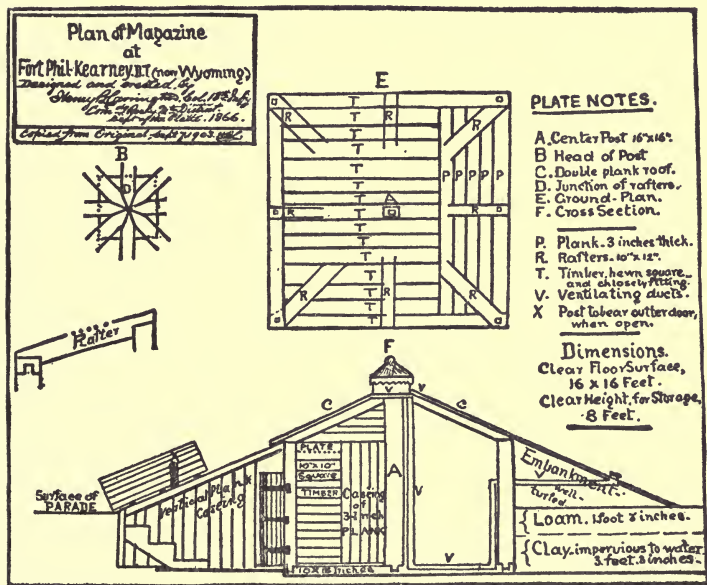 Plan of Magazine
at
Fort Phil-Kearney, D.T. (now Wyoming)
Designed and erected by
Henry B. Carrington, Col. 18th Inf.
Com.
1866.
Copied from Original, Sept. 7, 1903.
B
D
E
T
R
T
R
T
R
T
P P P P P
T
R
T
R
T
T
T
R
R
R
T
Rafter
PLATE NOTES.
A. Center Post 16"x16".
B Head of Post
C. Double plank roof.
D. Junction of rafters.
E. Ground-Plan.
F. Cross Section.
P. Plank-3 inches thick.
R. Rafters-10"x12".
T. Timber, hewn square
and chlosely fitting.
V. Ventilating ducts.
X Post to bear outter door,
when open.
Dimensions.
Clear Floor Surface,
16 x 16 Feet.
Clear Height, for Storage,
8 Feet.
F
V V
C C
PLATE
10"x10"
Square
TIMBER
Casing
of
3-inch
PLANK
A
V
V
10x16 inches
Surface of
PARADE
Vertical Plank
Casing
Embankment
well-
turfed
Loam. 1 foot 8 inches.
Clay-impervious to water
3 feet. 8 inches.